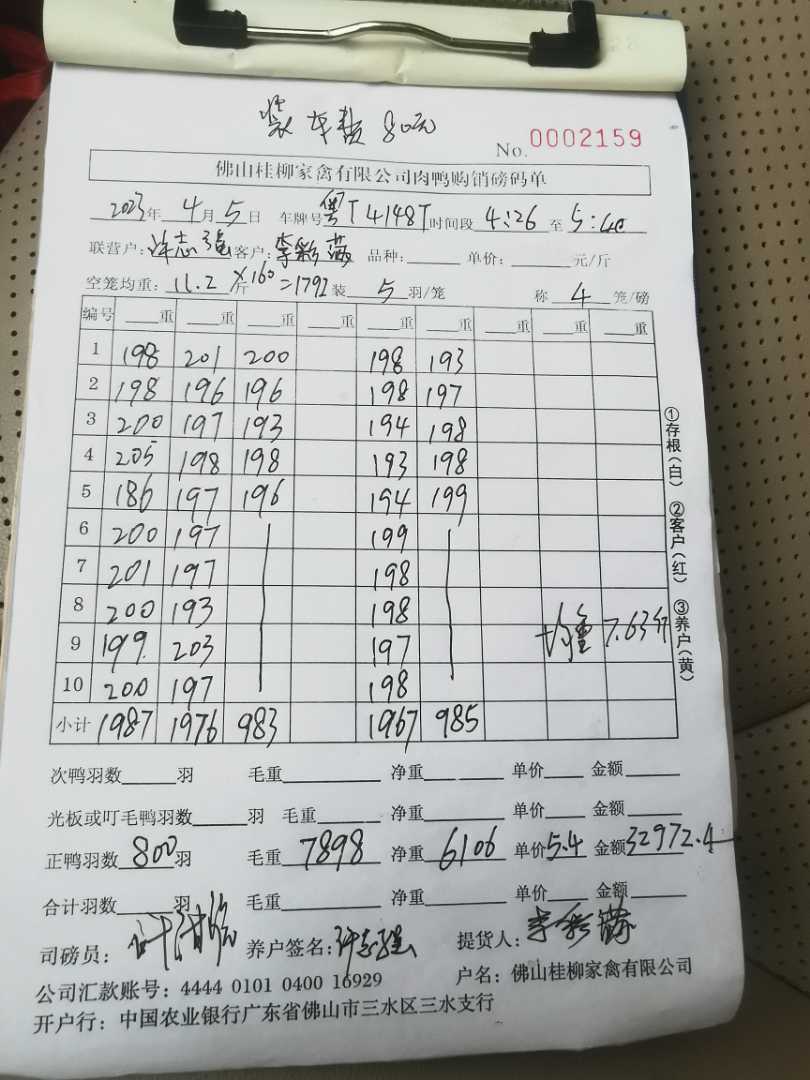 装车费 80元
No. 0002159
佛山桂柳家禽有限公司肉鸭购销磅码单
2023年 4月 5日 车牌号粤T4148T时间段 4:26 至 5:40
联营户: 许志强 客户: 李彩 品种: 单价: 元/斤
空笼均重: 11.2斤×160=1792 装 5 羽/笼 称 4 笼/磅
编号 重 重 重 重 重 重 重 重 重
1 198 201 200 198 193
2 198 196 196 198 197
3 200 197 193 194 198
4 205 198 198 193 198
5 186 197 196 194 199
6 200 197 199
7 201 197 198
8 200 193 198
9 199 203 197 均重 7.63斤
10 200 197 198
小计 1987 1976 983 1967 985
①存根(白) ②客户(红) ③养户(黄)
次鸭羽数 羽 毛重 净重 单价 金额
光板或叮毛鸭羽数 羽 毛重 净重 单价 金额
正鸭羽数 800 羽 毛重 7898 净重 6106 单价5.4 金额32972.4
合计羽数 羽 毛重 净重 单价 金额
司磅员: 叶 养户签名: 许志强 提货人: 李彩
公司汇款账号: 4444 0101 0400 16929 户名: 佛山桂柳家禽有限公司
开户行: 中国农业银行广东省佛山市三水区三水支行